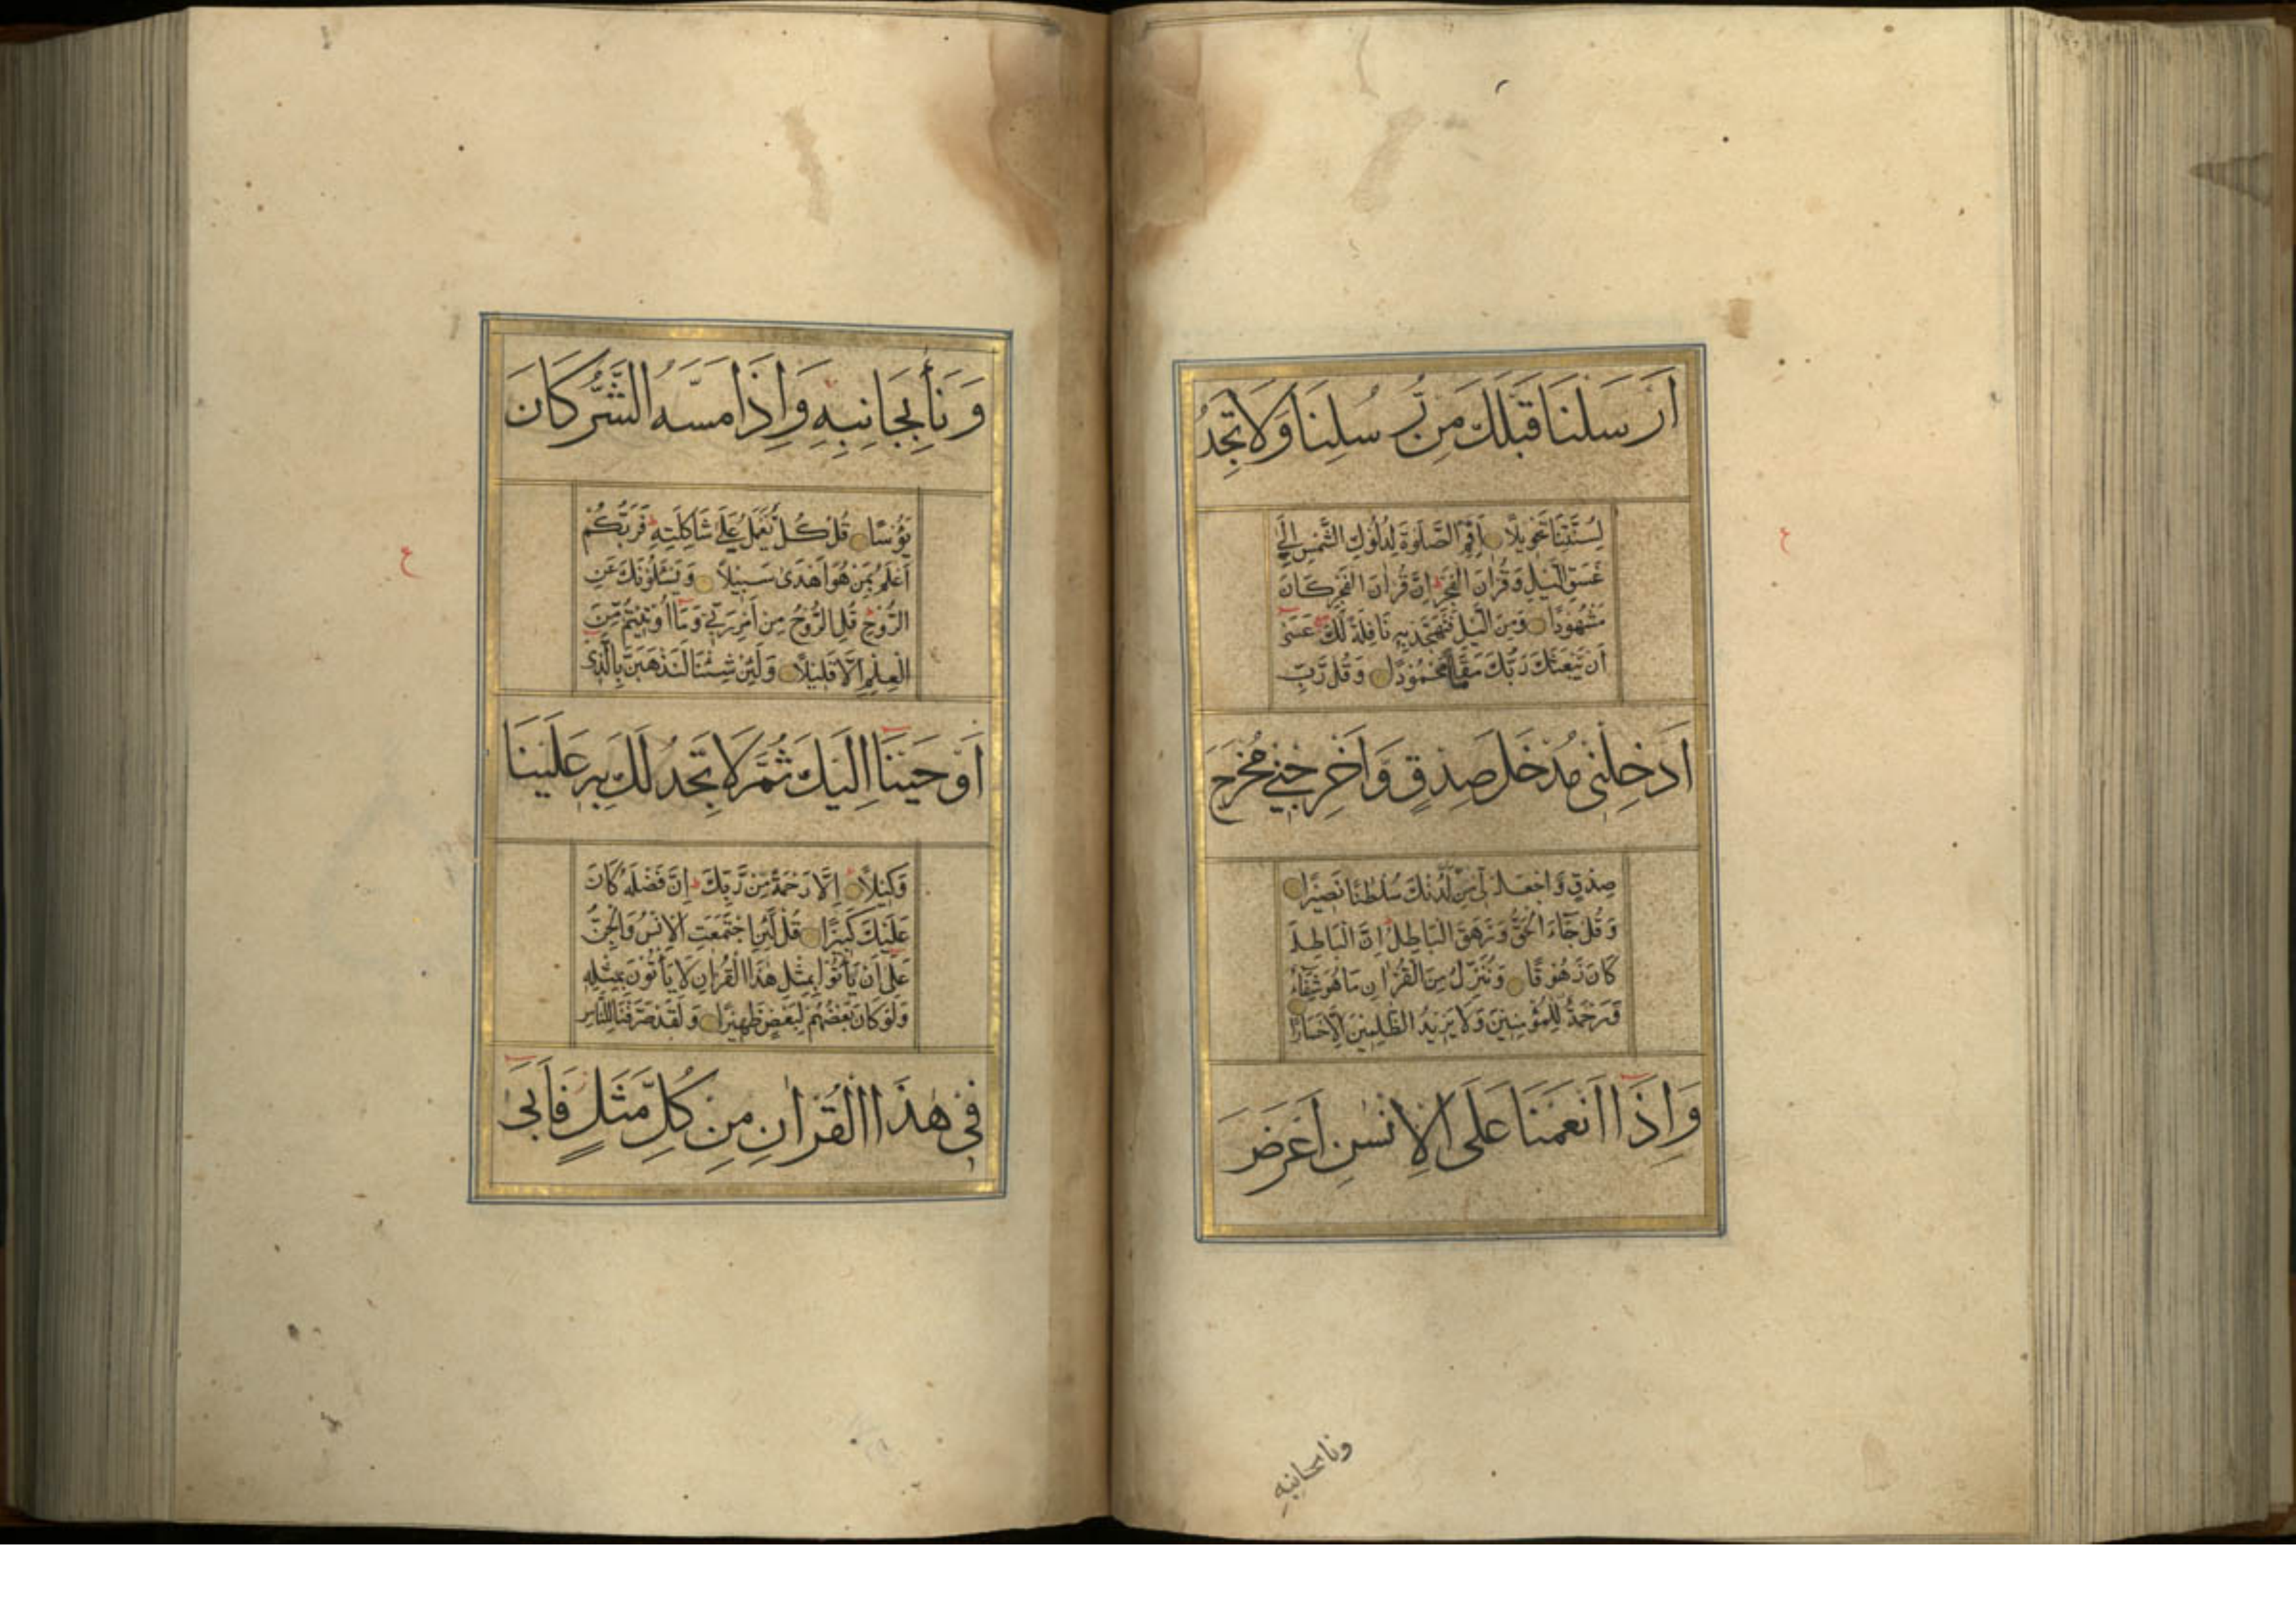 اَرْسَلْنَا قَبْلَكَ مِنْ رُسُلِنَا وَلَا تَجِدُ
لِسُنَّتِنَا تَحْوِيلًا اَقِمِ الصَّلٰوةَ لِدُلُوكِ الشَّمْسِ اِلٰى
غَسَقِ الَّيْلِ وَقُرْاٰنَ الْفَجْرِ اِنَّ قُرْاٰنَ الْفَجْرِ كَانَ
مَشْهُودًا وَمِنَ الَّيْلِ فَتَهَجَّدْ بِهِ نَافِلَةً لَكَ عَسٰى
اَنْ يَبْعَثَكَ رَبُّكَ مَقَامًا مَحْمُودًا وَقُلْ رَبِّ
اَدْخِلْنِي مُدْخَلَ صِدْقٍ وَاَخْرِجْنِي مُخْرَجَ
صِدْقٍ وَاجْعَلْ لِي مِنْ لَدُنْكَ سُلْطٰنًا نَصِيرًا
وَقُلْ جَاءَ الْحَقُّ وَزَهَقَ الْبَاطِلُ اِنَّ الْبَاطِلَ
كَانَ زَهُوقًا وَنُنَزِّلُ مِنَ الْقُرْاٰنِ مَا هُوَ شِفَاءٌ
وَرَحْمَةٌ لِلْمُؤْمِنِينَ وَلَا يَزِيدُ الظّٰلِمِينَ اِلَّا خَسَارًا
وَاِذَا اَنْعَمْنَا عَلَى الْاِنْسٰنِ اَعْرَضَ
ونا بجانبه
ع
وَنَأٰ بِجَانِبِهِ وَاِذَا مَسَّهُ الشَّرُّ كَانَ
يَؤُسًا قُلْ كُلٌّ يَعْمَلُ عَلٰى شَاكِلَتِهِ فَرَبُّكُمْ
اَعْلَمُ بِمَنْ هُوَ اَهْدٰى سَبِيلًا وَيَسْئَلُونَكَ عَنِ
الرُّوحِ قُلِ الرُّوحُ مِنْ اَمْرِ رَبِّي وَمَا اُوتِيتُمْ مِنَ
الْعِلْمِ اِلَّا قَلِيلًا وَلَئِنْ شِئْنَا لَنَذْهَبَنَّ بِالَّذِي
اَوْحَيْنَا اِلَيْكَ ثُمَّ لَا تَجِدُ لَكَ بِهِ عَلَيْنَا
وَكِيلًا اِلَّا رَحْمَةً مِنْ رَبِّكَ اِنَّ فَضْلَهُ كَانَ
عَلَيْكَ كَبِيرًا قُلْ لَئِنِ اجْتَمَعَتِ الْاِنْسُ وَالْجِنُّ
عَلٰى اَنْ يَأْتُوا بِمِثْلِ هٰذَا الْقُرْاٰنِ لَا يَأْتُونَ بِمِثْلِهِ
وَلَوْ كَانَ بَعْضُهُمْ لِبَعْضٍ ظَهِيرًا وَلَقَدْ صَرَّفْنَا لِلنَّاسِ
فِي هٰذَا الْقُرْاٰنِ مِنْ كُلِّ مَثَلٍ فَاَبٰى
ع